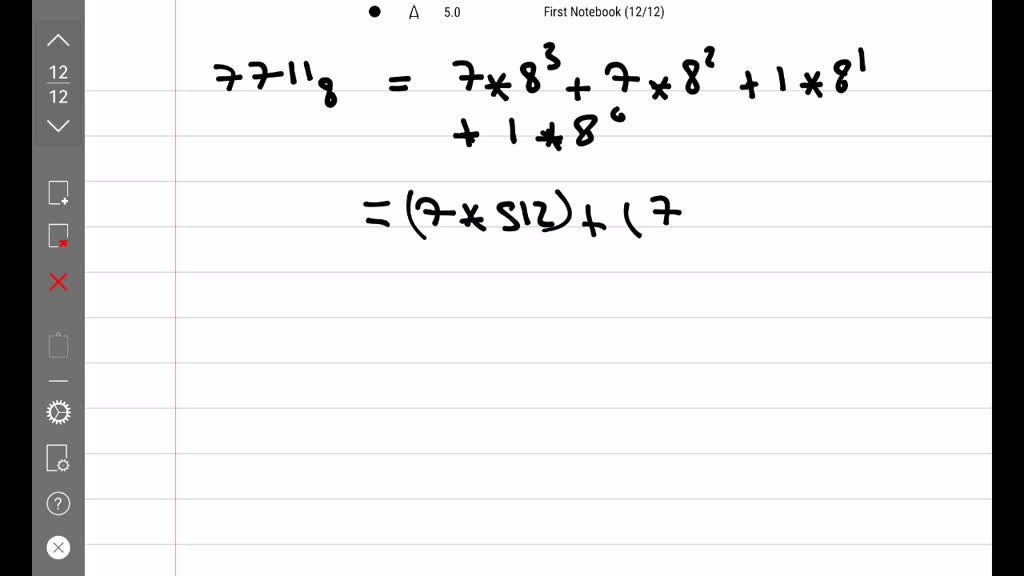 5.0 First Notebook (12/12)
12
12
7711₈ = 7*8³ + 7*8² + 1*8¹
+ 1*8⁰
= (7*512) + (7
?